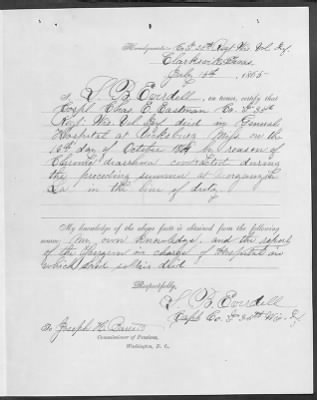 Headquarters Co. F. 35th Regt Wis Vol Inf.
Clarksville Texas
July 15th, 1865
I, S. B. Evedell, on honor, certify that
Corpl Chas. E. Eastman Co. F. 35th
Regt. Wis Vol Inf died in General
Hospital at Vicksburg Miss on the
16th day of October 1864 by reason of
Chronic diarrhoea contracted during
the preceding summer at Morganzia
La in the line of duty
My knowledge of the above fact is obtained from the following
source My own knowledge, and the report
of the Surgeon in charge of Hospital in
which said soldier died
Respectfully,
Capt Co. F 35th Wis. If
To Joseph H. Barrett
Commissioner of Pensions,
Washington, D. C.